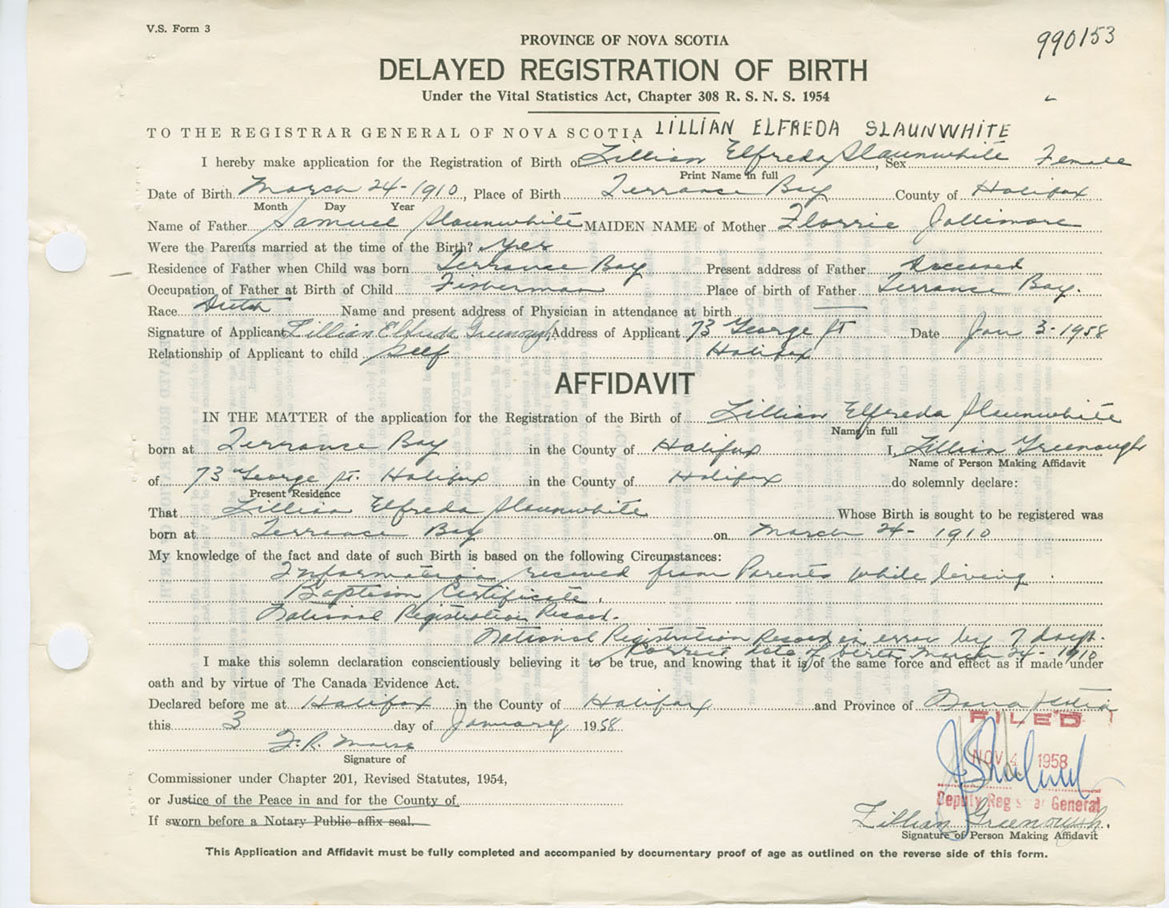 V.S. Form 3
990153
PROVINCE OF NOVA SCOTIA
DELAYED REGISTRATION OF BIRTH
Under the Vital Statistics Act, Chapter 308 R. S. N. S. 1954
TO THE REGISTRAR GENERAL OF NOVA SCOTIA LILLIAN ELFREDA SLAUNWHITE
I hereby make application for the Registration of Birth of Lillian Elfreda Slaunwhite, Sex Female
Print Name in full
Date of Birth March 24-1910, Place of Birth Terrance Bay County of Halifax
Month Day Year
Name of Father Samuel Slaunwhite MAIDEN NAME of Mother Florrie Jollimore
Were the Parents married at the time of the Birth? Yes
Residence of Father when Child was born Terrance Bay Present address of Father Deceased
Occupation of Father at Birth of Child Fisherman Place of birth of Father Terrance Bay.
Race Dutch Name and present address of Physician in attendance at birth
Signature of Applicant Lillian Elfreda Greenough Address of Applicant 73 George St Date Jan 3-1958
Relationship of Applicant to child Self Halifax
AFFIDAVIT
IN THE MATTER of the application for the Registration of the Birth of Lillian Elfreda Slaunwhite
Name in full
born at Terrance Bay in the County of Halifax I, Lillian Greenough
Name of Person Making Affidavit
of 73 George St. Halifax in the County of Halifax do solemnly declare:
Present Residence
That Lillian Elfreda Slaunwhite Whose Birth is sought to be registered was
born at Terrance Bay on March 24- 1910
My knowledge of the fact and date of such Birth is based on the following Circumstances:
Information recieved from Parents while living
Baptism Certificate.
National Registration Record.
National Registration Record in error by 7 days.
Correct date of birth March 24-1910
I make this solemn declaration conscientiously believing it to be true, and knowing that it is of the same force and effect as if made under
oath and by virtue of The Canada Evidence Act.
Declared before me at Halifax in the County of Halifax and Province of Nova Scotia
this 3 day of January 1958
FILED
Signature of
NOV 4 1958
Commissioner under Chapter 201, Revised Statutes, 1954,
or Justice of the Peace in and for the County of
Deputy Registrar General
If sworn before a Notary Public affix seal.
Lillian Greenough.
Signature of Person Making Affidavit
This Application and Affidavit must be fully completed and accompanied by documentary proof of age as outlined on the reverse side of this form.